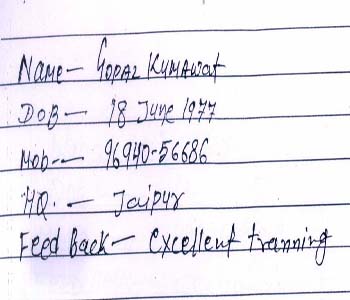 Name - Gopal Kumawat
DOB - 18 June 1977
Mob. - 96940-56686
HQ. - Jaipur
Feed Back - Excellent tranning